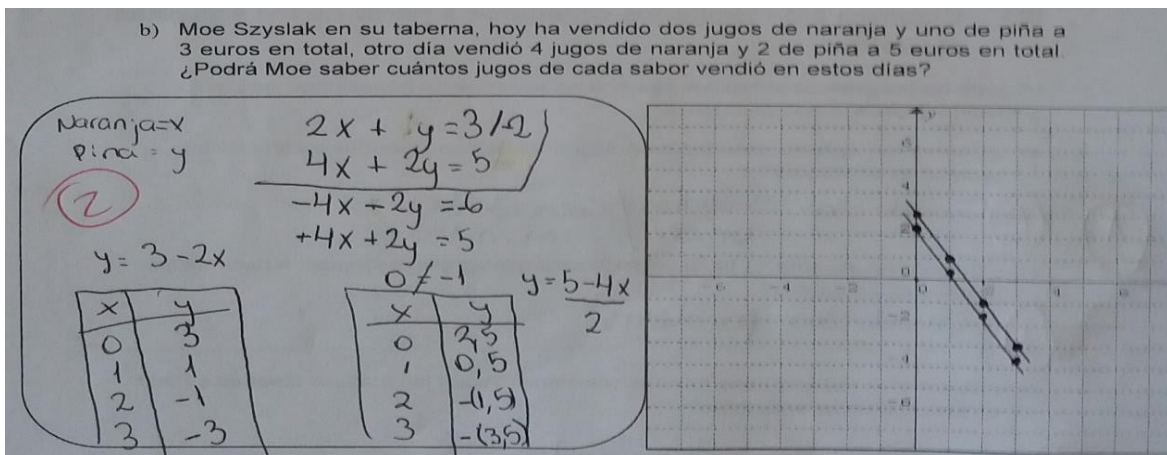 b) Moe Szyslak en su taberna, hoy ha vendido dos jugos de naranja y uno de piña a
3 euros en total, otro día vendió 4 jugos de naranja y 2 de piña a 5 euros en total.
¿Podrá Moe saber cuántos jugos de cada sabor vendió en estos días?
Naranja=x
Pina = y
2
2x + y = 3 /-2
4x + 2y = 5
-4x - 2y = -6
+4x + 2y = 5
0 ≠ -1
y = 3 - 2x
x y
0 3
1 1
2 -1
3 -3
y = 5-4x
2
x y
0 2,5
1 0,5
2 -(1,5)
3 -(3,5)
y
4
2
0
-6 -4 -2 0 4
-2
-4
-6